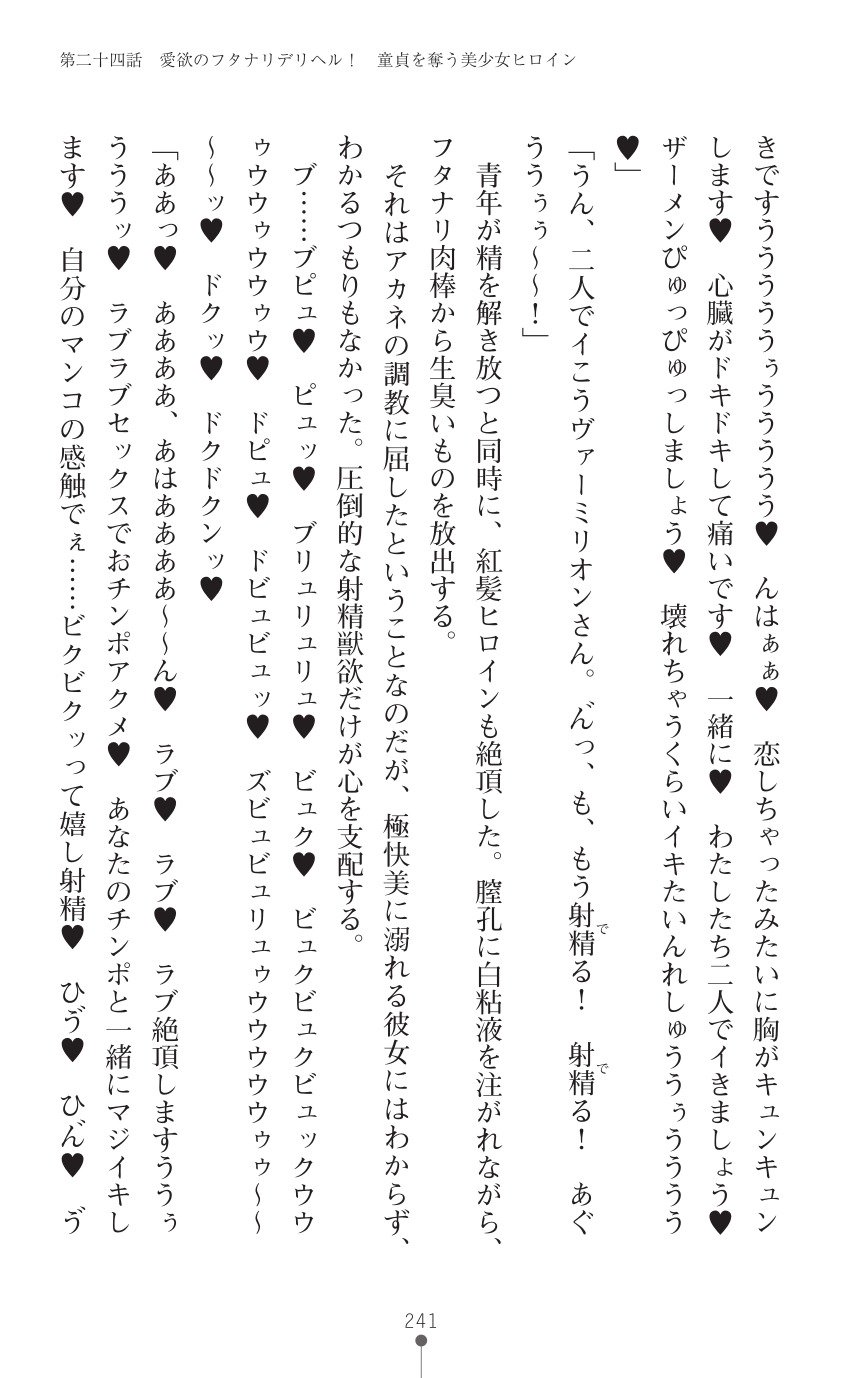 第二十四話　愛欲のフタナリデリヘル！　童貞を奪う美少女ヒロイン
きですうううううぅううううう♥　んはぁぁ♥　恋しちゃったみたいに胸がキュンキュン
します♥　心臓がドキドキして痛いです♥　一緒に♥　わたしたち二人でイきましょう♥
ザーメンぴゅっぴゅっしましょう♥　壊れちゃうくらいイキたいんれしゅううぅうううう
♥」
「うん、二人でイこうヴァーミリオンさん。ん゛っ、も、もう射精る！　射精る！　あぐ
ううぅぅ～～！」
　青年が精を解き放つと同時に、紅髪ヒロインも絶頂した。膣孔に白粘液を注がれながら、
フタナリ肉棒から生臭いものを放出する。
　それはアカネの調教に屈したということなのだが、極快美に溺れる彼女にはわからず、
わかるつもりもなかった。圧倒的な射精獣欲だけが心を支配する。
　ブ……ブピュ♥　ピュッ♥　ブリュリュリュ♥　ビュク♥　ビュクビュクビュックウウ
ゥウウゥウウゥウ♥　ドピュ♥　ドビュビュッ♥　ズビュビュリュゥウウウウウゥゥ～～
～～ッ♥　ドクッ♥　ドクドクンッ♥
「ああっ♥　ああああ、あはああああ～～ん♥　ラブ♥　ラブ♥　ラブ絶頂しますううぅ
うううッ♥　ラブラブセックスでおチンポアクメ♥　あなたのチンポと一緒にマジイキし
ます♥　自分のマンコの感触でぇ……ビクビクッって嬉し射精♥　ひゔ♥　ひん゛♥　ゔ
241